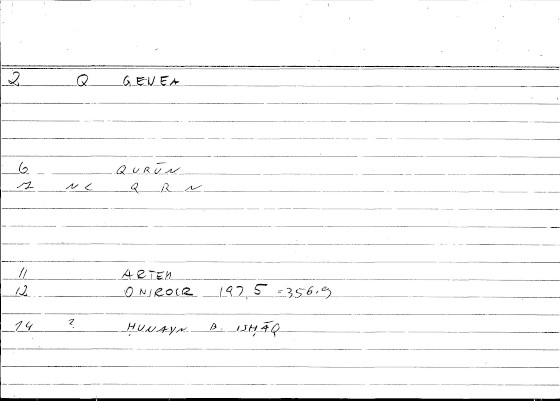 2 Q GEVEA
6 QURŪN
7 NC Q R N
11 ARTEM
12 ONIROCR 197,5 =356.9
14 ? ḤUNAYN B. ISḤĀQ